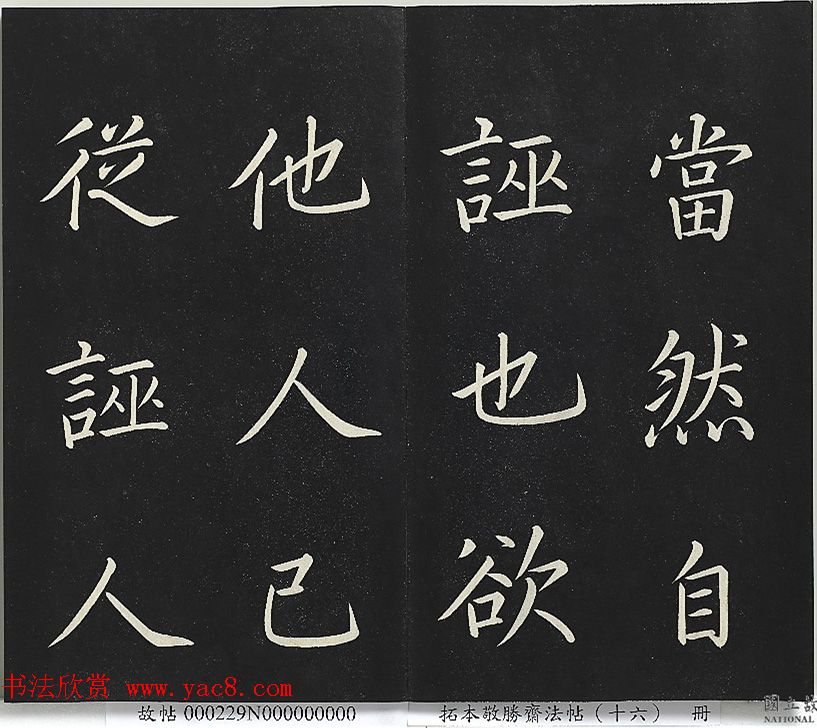 當然自
誣也欲
他人己
從誣人
书法欣赏 www.yac8.com
故帖 000229N000000000
拓本敬勝齋法帖（十六） 冊
國立故
NATIONAL